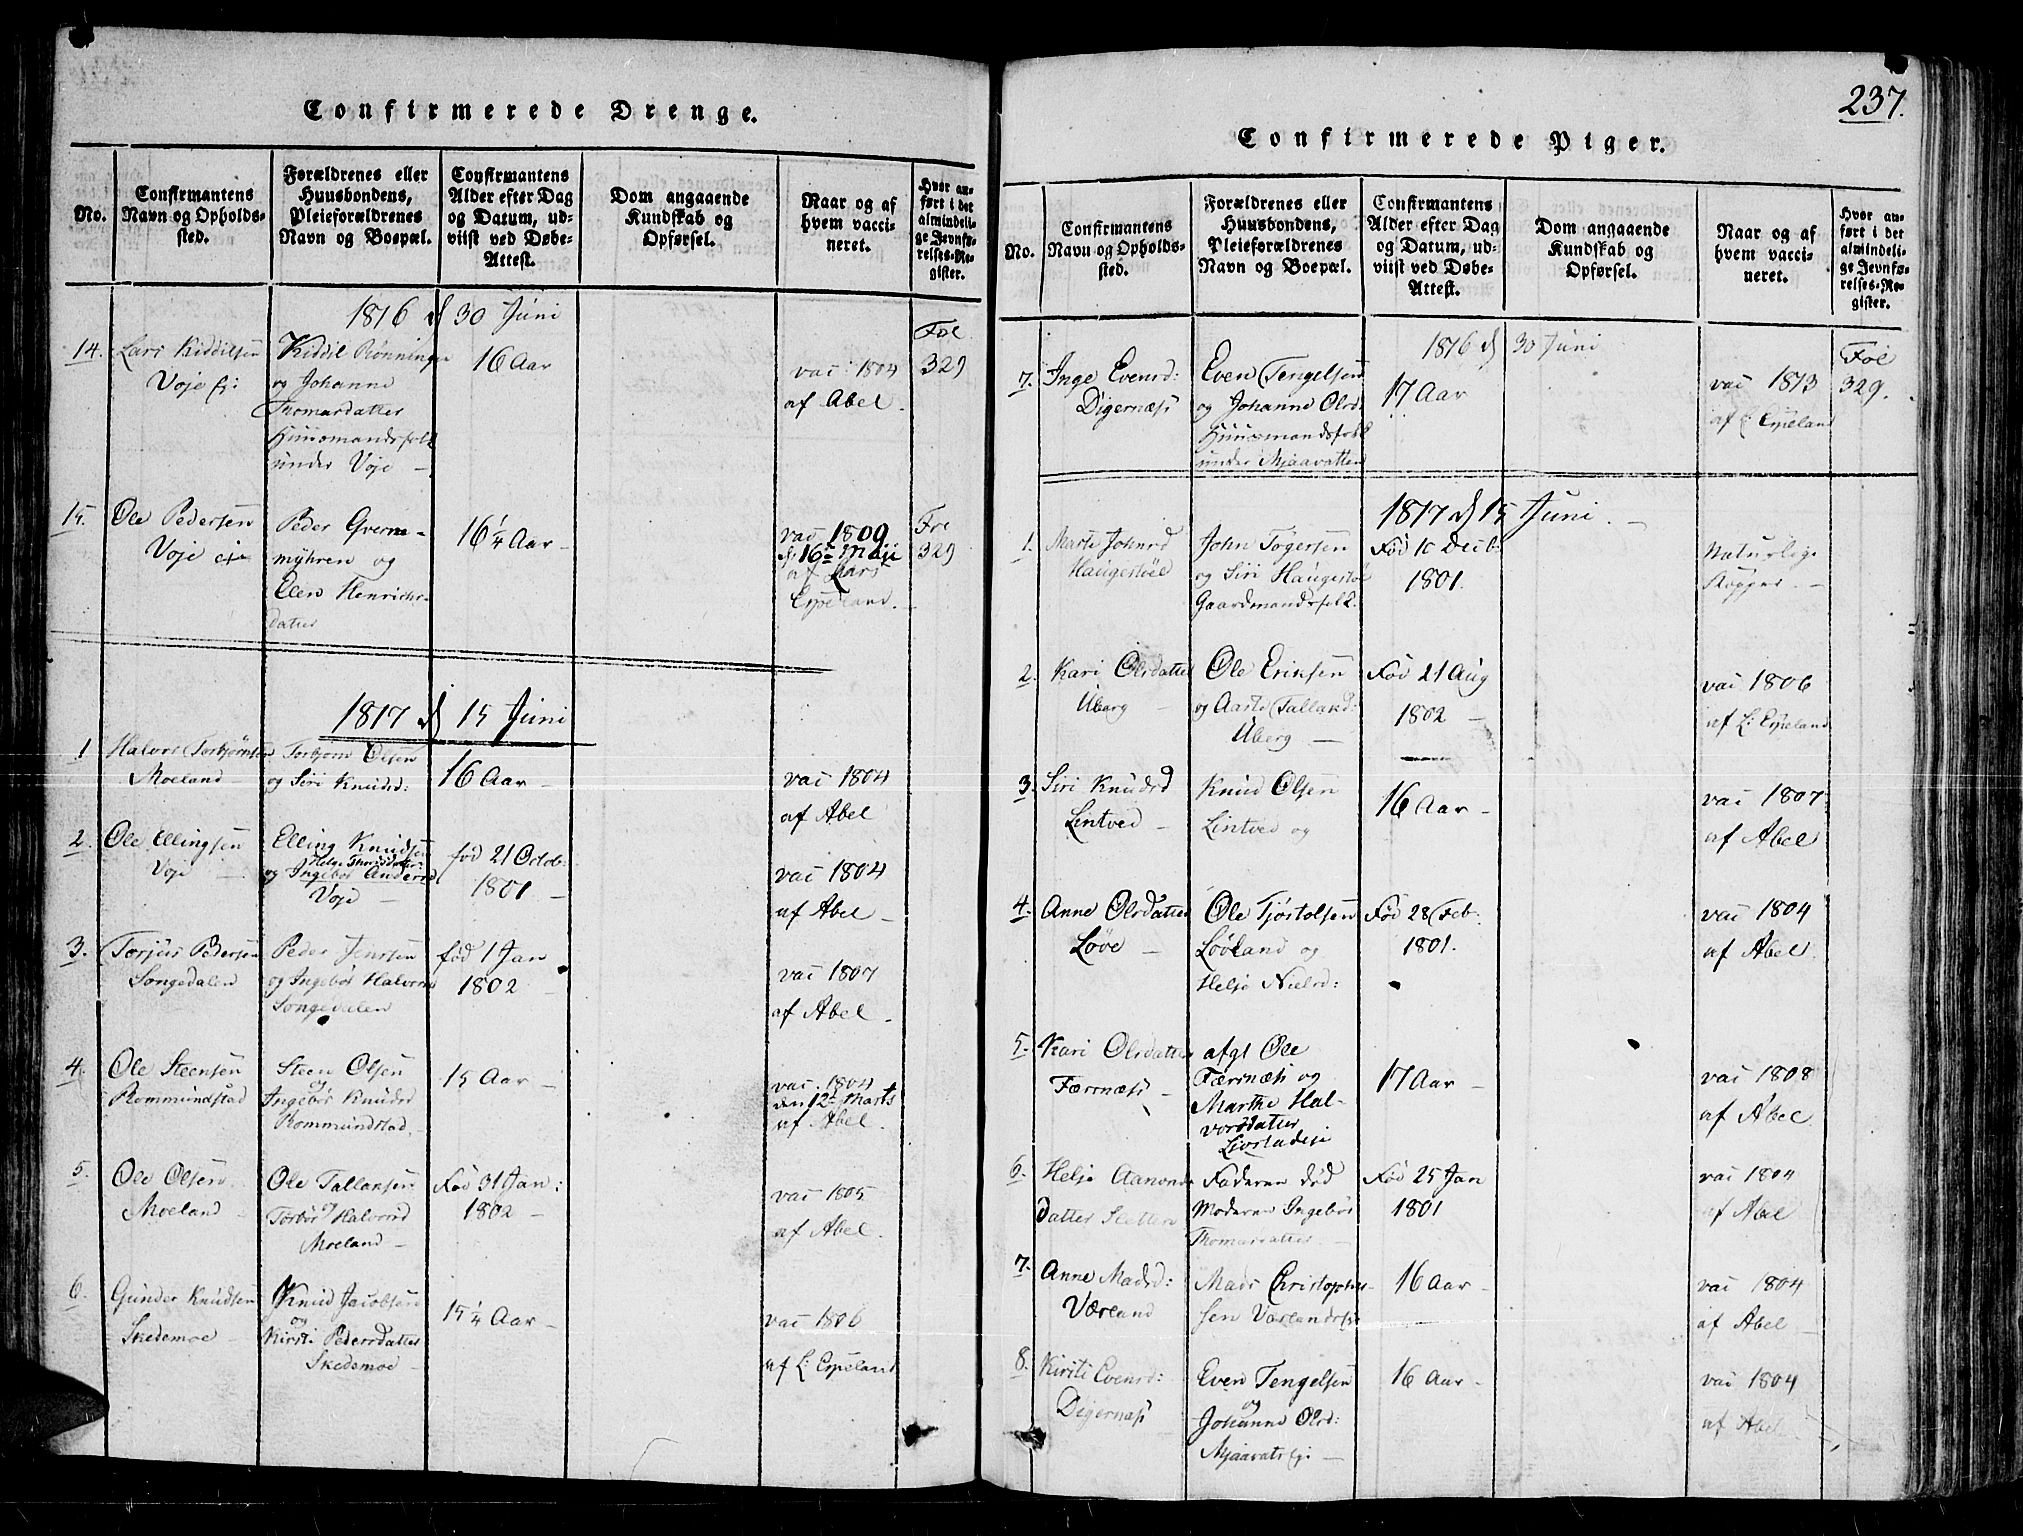 Confirmerede Drenge.
No.
Confirmantens
Navn og Opholds-
sted.
Forældrenes eller
Huusbondens,
Pleieforældrenes
Navn og Boepæl.
Confirmantens
Alder efter Dag
og Datum, ud-
viist ved Døbe-
Attest.
Dom angaaende
Kundskab og
Opførsel.
Naar og af
hvem vacci-
neret.
Hvor an-
ført i det
almindeli-
ge Jevnfø-
relses-Re-
gister.
1816 d 30 Juni
14.
Lars Kiddilsen
Voje
Kiddil Rønningen
og Johanne
Thomasdatter
Huusmandsfolk
under Voje
16 Aar
vac 1804
af Abel.
Fol
329
15.
Ole Pedersen
Voje eje
Peder Qverne-
myhren og
Elen Henrichs-
datter
16 1/4 Aar
vac 1809
d. 16de Maji
af Lars
Espeland.
Fol
329
1817 d 15 Juni
1
Halvor Torbjørnsen
Moeland
Torbjørn Olsen
og Siri Knudsd:
16 Aar
vac 1804
af Abel
2.
Ole Ellingsen
Voje
Elling Knudsen
Helge Thorsdatter
og Ingebor Andersd
Voje
fød 21 Octob:
1801
vac 1804
af Abel
3.
Torjus Pedersen
Songedalen
Peder Jensen
og Ingebor Halvorsd
Songedalen
fød 1 Jan
1802
vac 1807
af Abel
4.
Ole Steensen
Rommundstad
Steen Olsen
og
Ingebor Knudsd
Rommundstad.
15 Aar
vac. 1804
den 12te Marts
af Abel.
5.
Ole Olsen
Moeland
Ole Tallaksen
og
Torbor Halvorsd
Moeland
Fød 31 Jan:
1802
vac 1805
af Abel.
6.
Gunder Knudsen
Skedemoe
Knud Jacobsen
og
Kirsti Pedersdatter
Skedemoe
15 1/4 Aar
vac 1806
af L: Espeland
237.
Confirmerede Piger.
No.
Confirmantens
Navn og Opholds-
sted.
Forældrenes eller
Huusbondens,
Pleieforældrenes
Navn og Boepæl.
Confirmantens
Alder efter Dag
og Datum, ud-
viist ved Døbe-
Attest.
Dom angaaende
Kundskab og
Opførsel.
Naar og af
hvem vacci-
neret.
Hvor an-
ført i det
almindeli-
ge Jevnfø-
relses-Re-
gister.
1816 d 30 Juni
7.
Inge Evensd:
Digernæs
Even Tengelsen
og Johanne Olsd:
Huusmandsfolk
under Mjaavatten
17 Aar
vac 1813
af L Espeland
Fol
329.
1817 d 15 Juni
1.
Marte Johnsd
Haugestøel
John Togersen
og Siri Haugestøel
Gaardmandsfolk.
Fød 10 Decb:
1801.
Naturlige
Kopper
2.
Kari Olsdatter
Uberg
Ole Eriksen
og Aaste Tallaksd:
Uberg
Fød 21 Aug
1802
vac 1806
af L: Espeland
3.
Siri Knudsd
Lintved
Knud Olsen
Lintved og
16 Aar
vac 1807
af Abel
4.
Anne Olsdatter
Løve
Ole Tjostolsen
Løveland og
Helje Nielsd:
Fød 28 Feb:
1801.
vac 1804
af Abel.
5.
Kari Olsdatter
Færrnæs
afgl Ole
Færrnæs og
Marthe Hal-
vorsdatter
17 Aar
vac 1808
af Abel
6.
Helje Aamonds
datter
Faderen død
Moderen Ingebor
Thomasdatter
Fød 25 Jan
1801
vac 1804
af Abel
7.
Anne Madsd:
Værland
Mads Christopher-
sen Værlands
16 Aar
vac 1804
af Abel
8.
Kirsti Evensd:
Digernæs
Even Tengelsen
og
Johanne Olsd:
Mjaavats
16 Aar
vac 1804
af Abel